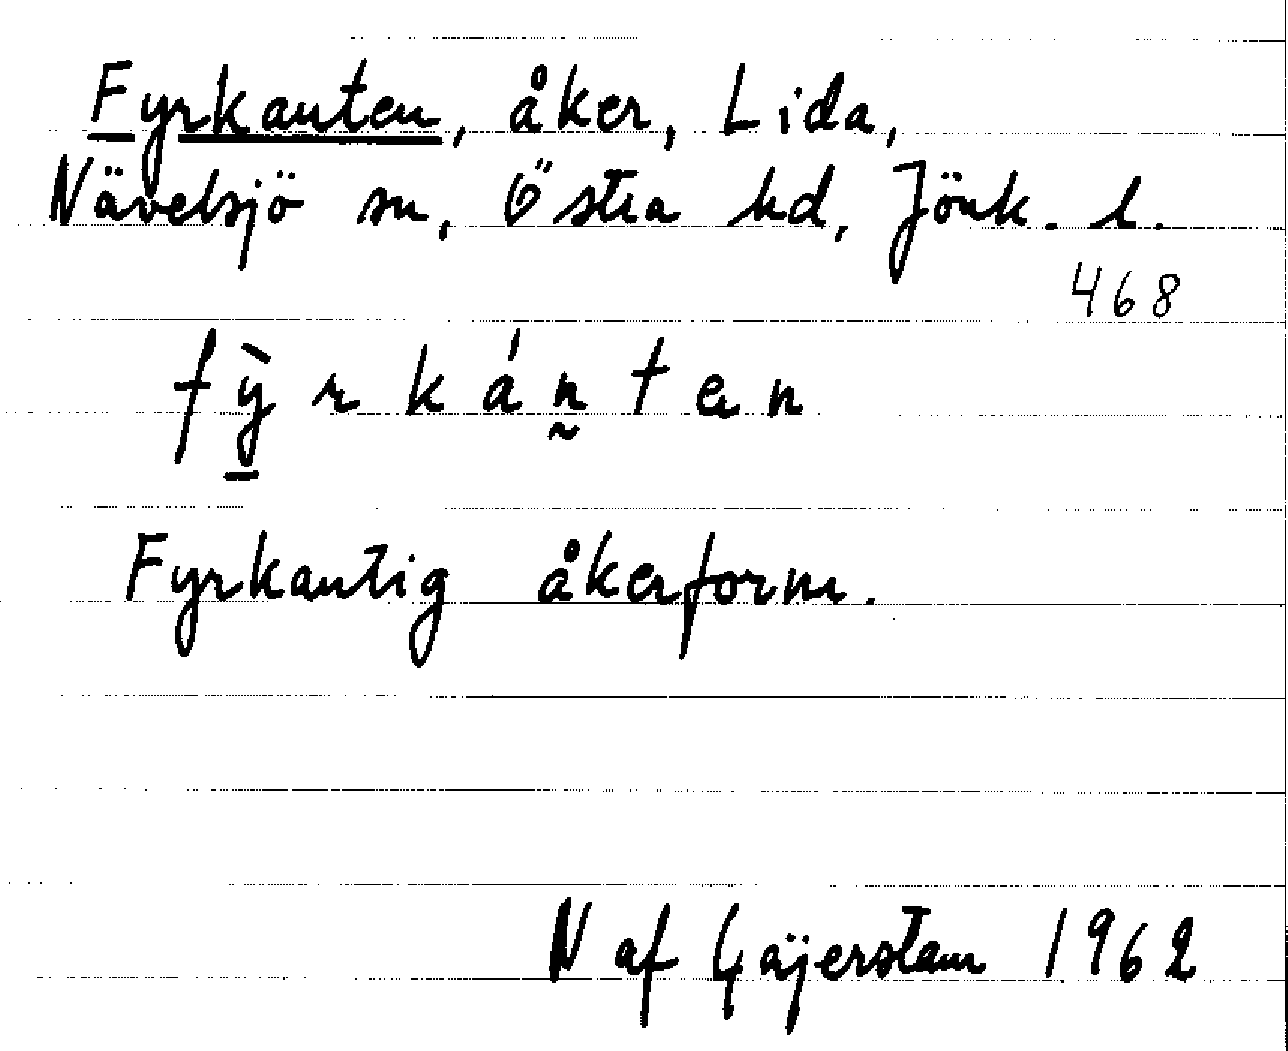 Fyrkanten, åker, Lida,
Nävelsjö sn, Östra hd, Jönk. l.
468
fỳ̱rkán̰ten
Fyrkantig åkerform.
N af Gäjerstam 1962